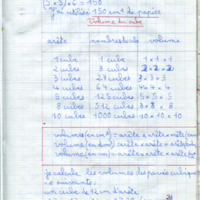 (5 × 5) × 6 = 150
J'ai utilisé 150 cm² de papier
Volume du cube
arête nombre de cubes volume
1 cube 1 cube 1 × 1 × 1
2 cubes 8 cubes 2 × 2 × 2
3 cubes 27 cubes 3 × 3 × 3
4 cubes 64 cubes 4 × 4 × 4
5 cubes 125 cubes 5 × 5 × 5
8 cubes 512 cubes 8 × 8 × 8
10 cubes 1000 cubes 10 × 10 × 10
volume (en cm³) = arête × arête × arête
volume (en dm³) = arête × arête × arête
volume (en m³) = arête × arête × arête
je calcule les volumes des pavés cubiques
un cube de 12 cm d'arête